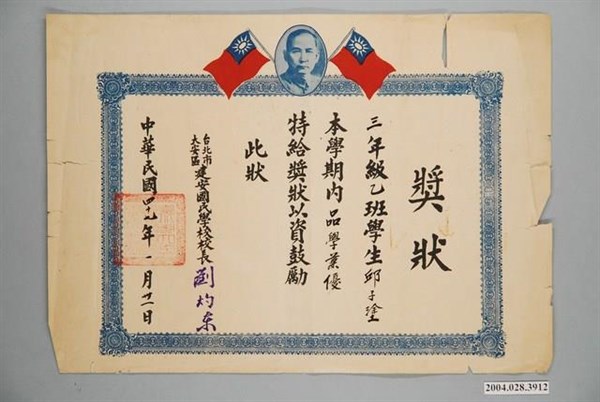 獎狀
三年級乙班學生邱子塗
本學期內品學業優
特給獎狀以資鼓勵
此狀
台北市大安區建安國民學校校長劉灼東
中華民國四九年一月廿一日
2004.028.3912